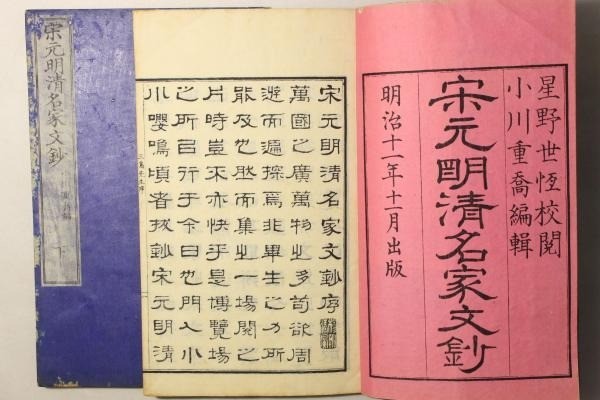 星野世恆校閲
小川重喬編輯
宋元明清名家文鈔
明治十一年十一月出版
宋元明清名家文鈔序
萬國之廣萬物之多苟欲周
遊而遍探焉非畢生之力所
能及也然而集之一場閲之
片時豈不亦快乎是博覽場
之所㠯行于今日也門人小
川嚶鳴頃者抜鈔宋元明清
宋元明清名家文鈔
下